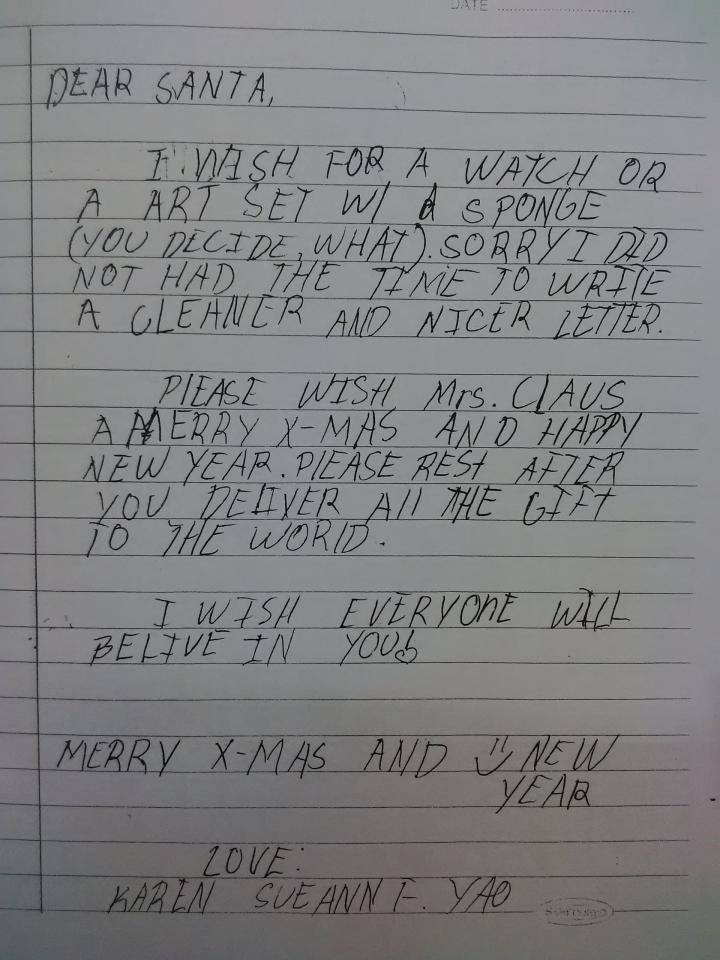 DATE
DEAR SANTA,
I WISH FOR A WATCH OR
A ART SET W/ A SPONGE
(YOU DECIDE, WHAT). SORRY I DID
NOT HAD THE TIME TO WRITE
A CLEANER AND NICER LETTER.
PLEASE WISH Mrs. ClAUS
A MERRY X-MAS AND HAPPY
NEW YEAR. PLEASE REST AFTER
YOU DELIVER All THE GIFT
TO THE WORLD.
I WISH EVERYOnE WILL
BELIVE IN YOU
MERRY X-MAS AND NEW
YEAR
LOVE:
KAREN SUEANN F. YAO